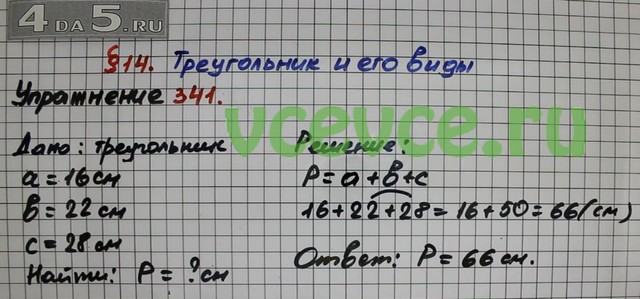 4DA5.RU
§14. Треугольник и его виды
Упражнение 341.
vcevce.ru
Дано: треугольник
a = 16 см
b = 22 см
c = 28 см
Найти: P = ? см
Решение:
P = a + b + c
16 + 22 + 28 = 16 + 50 = 66 (см)
Ответ: P = 66 см.